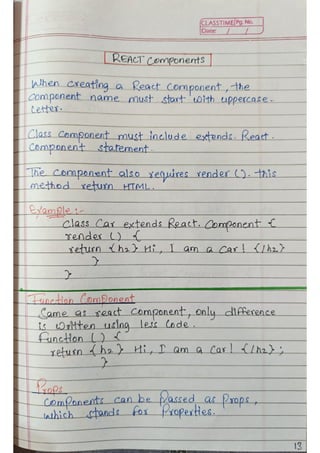 CLASSTIME Pg. No.
Date / /
REACT Components
When creating a React component, the
component name must start with uppercase.
Letter.
Class component must include extends. React.
Component statement.
The component also requires render (). this
method return HTML.
Example :-
Class Car extends React. Component {
render () {
return <h2> Hi, I am a Car! </h2>
}
}
Function Component
Same as react component, only difference
is written using less Code.
function () {
return <h2> Hi, I am a Car! </h2>;
}
Props
Components can be passed as Props,
which stands for Properties.
13